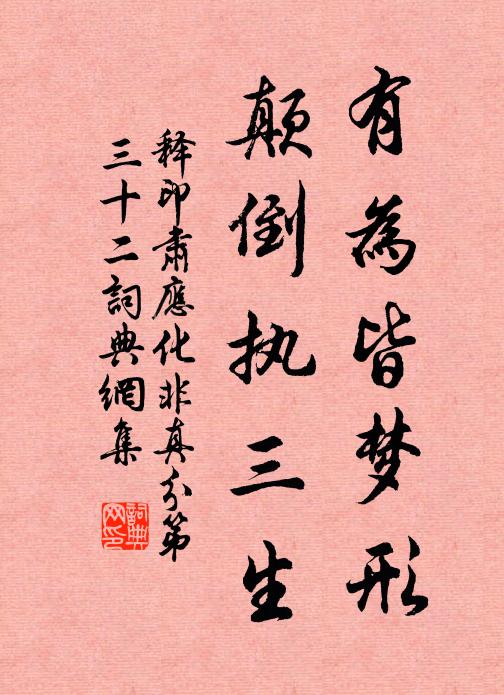 有為皆梦形
顛倒执三生
释印肃應化非真分第
三十二詞典網集
詞典
网印